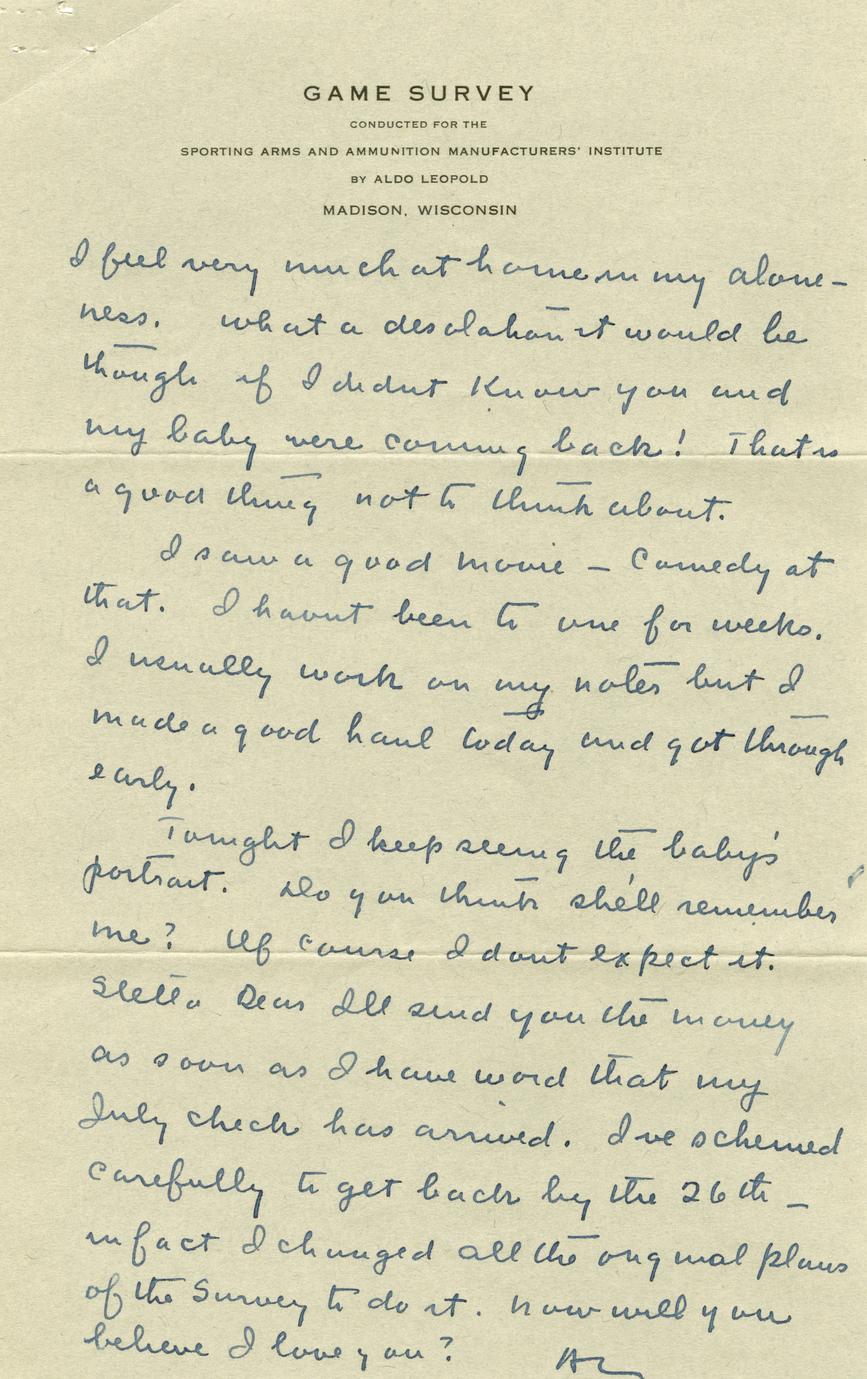 GAME SURVEY
CONDUCTED FOR THE
SPORTING ARMS AND AMMUNITION MANUFACTURERS' INSTITUTE
BY ALDO LEOPOLD
MADISON, WISCONSIN
I feel very much at home in my alone-
ness. What a desolation it would be
though if I didnt know you and
my baby were coming back! That is
a good thing not to think about.
I saw a good movie – Comedy at
that. I havnt been to one for weeks.
I usually work on my notes but I
made a good haul today and got through
early.
Tonight I keep seeing the baby's
portrait. Do you think she'll remember
me? Of course I dont expect it.
Dear Ill send you the money
as soon as I have word that my
July check has arrived. I've schemed
carefully to get back by the 26th –
in fact I changed all the original plans
of the Survey to do it. Now will you
believe I love you? AL